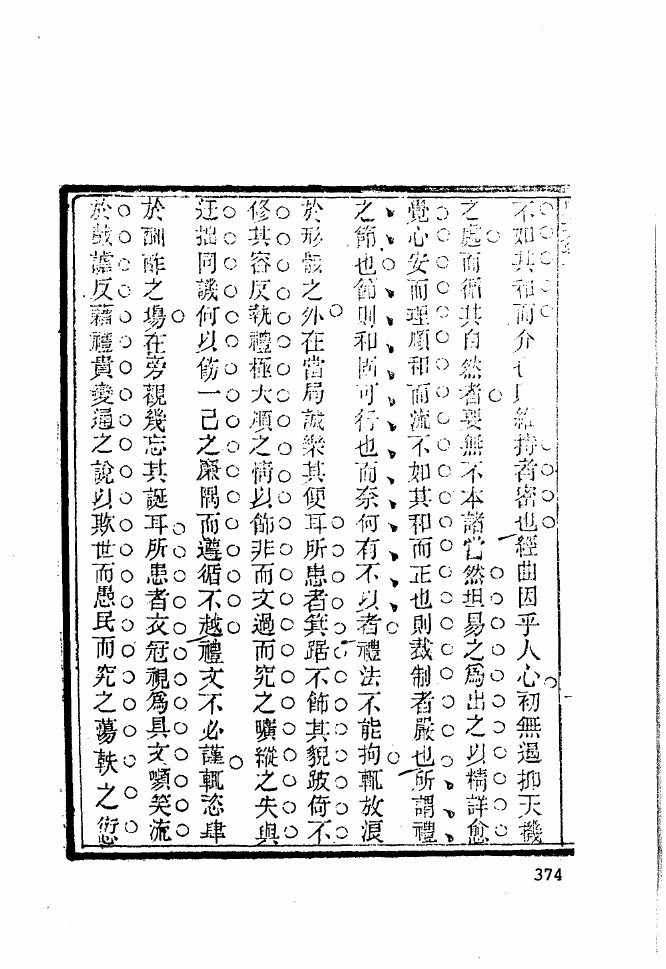 不如其和而介也則維持者密也經曲因乎人心初無過抑天機
之處而循其自然者要無不本諸當然坦易之爲出之以精詳愈
覺心安而理順和而流不如其和而正也則裁制者嚴也所謂禮
之節也節則和固可行也而奈何有不以者禮法不能拘輒放浪
於形骸之外在當局誠樂其便耳所患者箕踞不飾其貌跛倚不
修其容反執禮極大順之情以飾非而文過而究之曠縱之失與
迂拙同譏何以飭一己之廉隅而遵循不越禮文不必謹輒恣肆
於酬酢之場在旁觀幾忘其誕耳所患者衣冠視爲具文嚬笑流
於戲謔反藉禮貴變通之說以欺世而愚民而究之蕩軼之愆
374